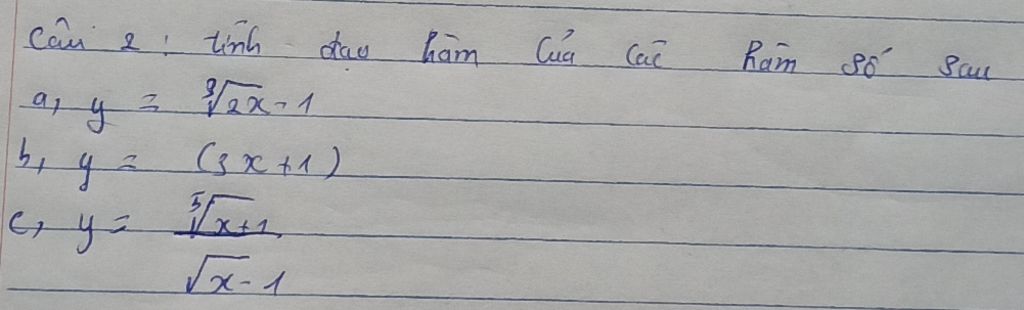 Câu 2 : tính đạo hàm của các hàm số sau
a, y = ∛2x - 1
b, y = (3x + 1)
c, y = ⁵√x+1
√x - 1